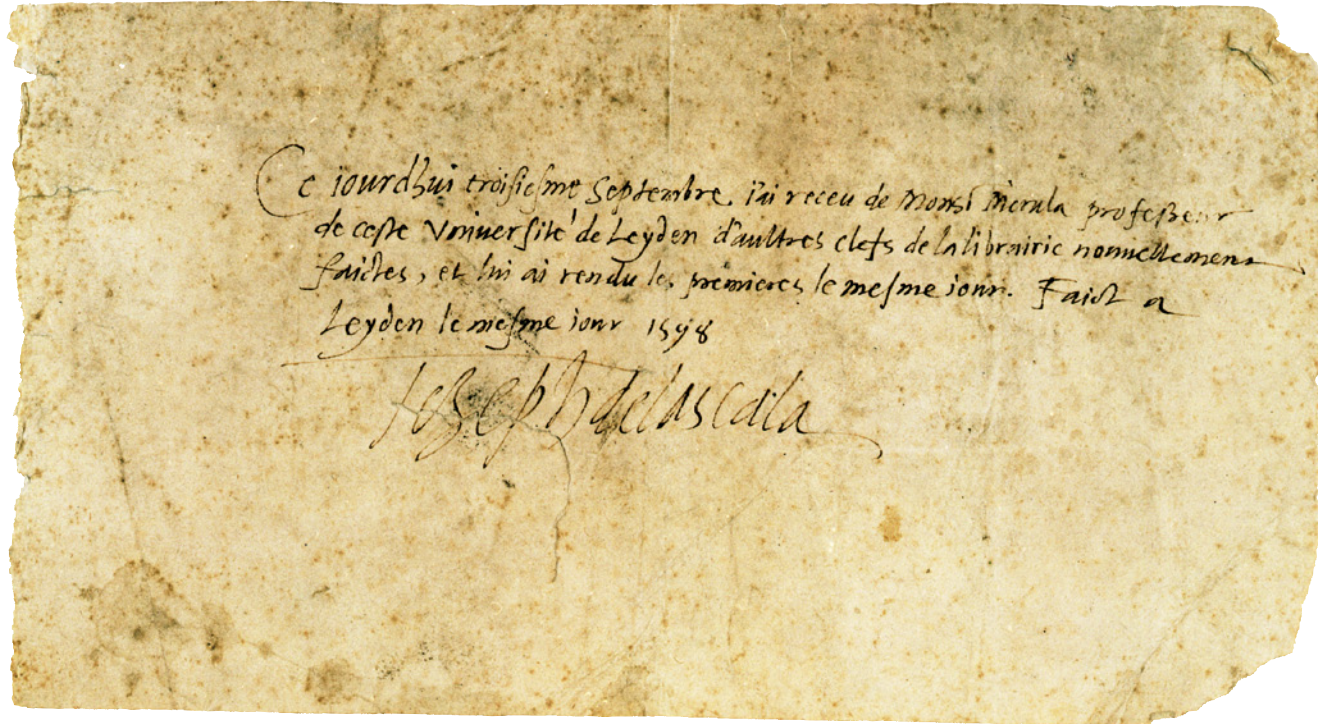 Ce iourdhui troisiesme Septembre i'ai receu de Monsr Merula professeur
de ceste Vniuersité de Leyden d'aultres clefs de la librairie nouuellement
faictes, et lui ai rendu les premieres le mesme iour. Faict a
Leyden le mesme iour 1598
Joseph de la Scala